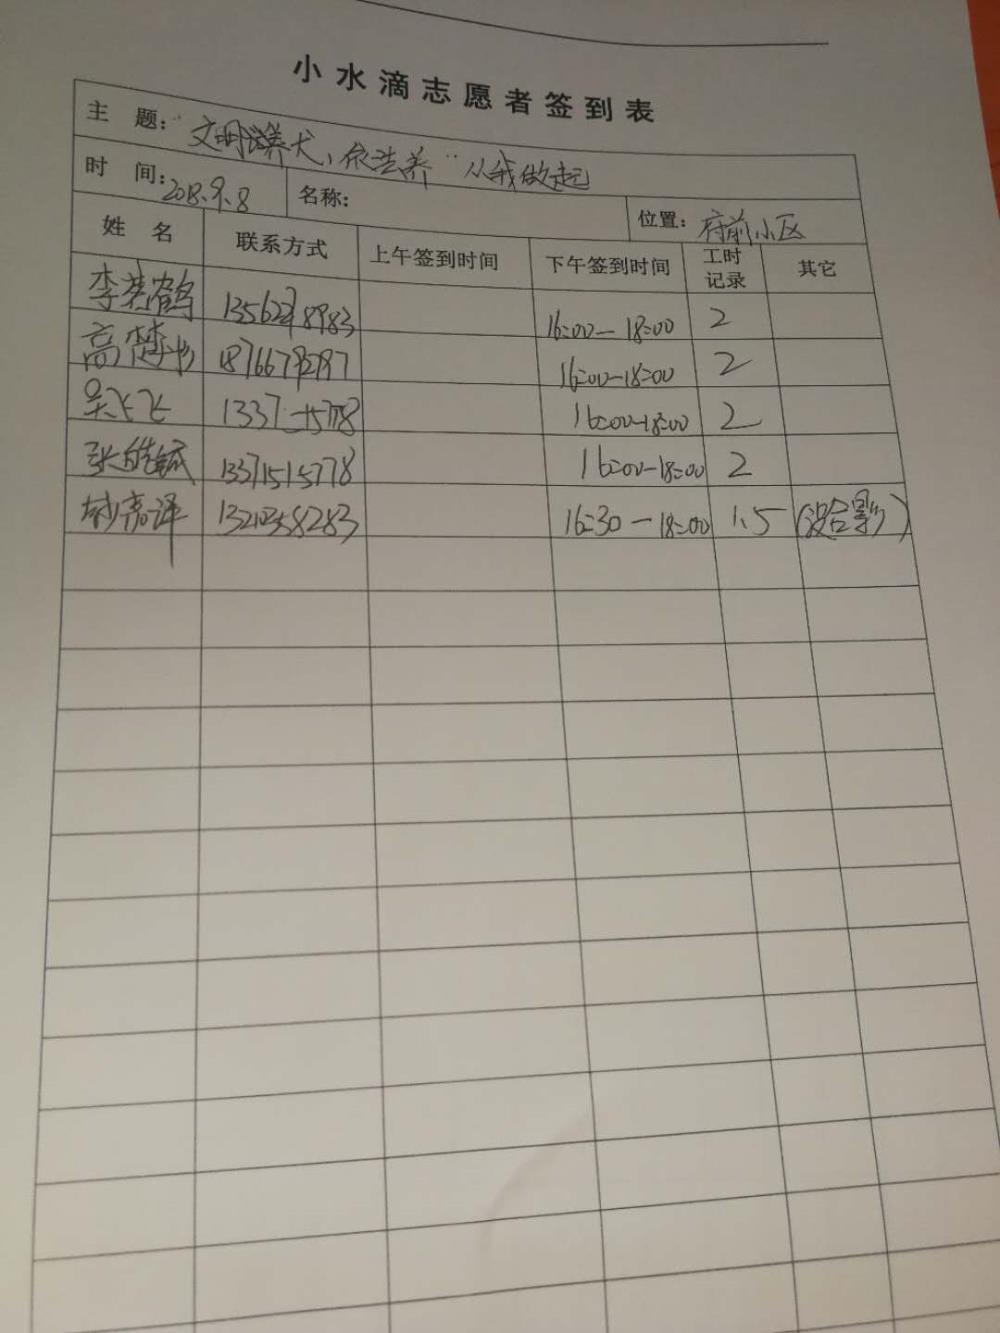 小水滴志愿者签到表
主 题: "文明养犬,依法养"从我做起
时 间: 2018.9.8 名称: 位置: 府前小区
姓 名 联系方式 上午签到时间 下午签到时间 工时记录 其它
李英鹤 8983 16:00-18:00 2
高楚 18766792797 16:00-18:00 2
吴飞飞 1337 5778 16:00-18:00 2
张皓斌 13371515778 16:00-18:00 2
亮译 13210358283 16:30-18:00 1.5 (没合影)